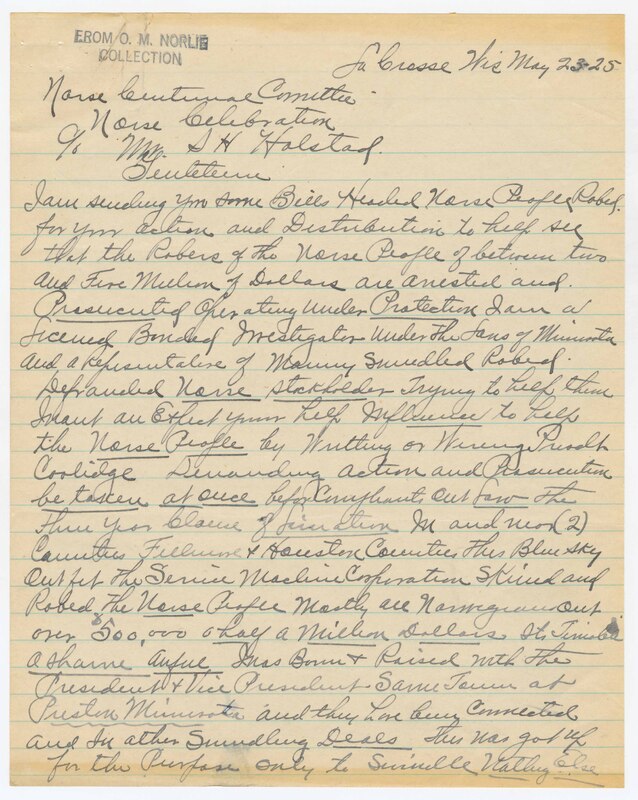 FROM O. M. NORLIE
COLLECTION
La Crosse Wis May 23-25
Norse Centennial Comittee
Norse Celebration
c/o Mr. S H Holstad.
I am sending you some Bills Headed Norse People Robed.
for your action and Distribution to help see
that the Robers of the Norse People of between two
and Five Million of Dollars are arrested and.
Prosecuted Operating under Protection I am a
Licened Bonded Investigator under the Laws of Minnesota
and a Representative of Manny Swindled Robed.
Defrauded Norse stockholder Trying to help them
I want an Expect your help Influence to help
the Norse People by Writting or Wireing Presdt
Coolidge Demanding action and Prosecution
be taken at once before Complaints Out Law the
Three Year Clause of limitation In and near (2)
Counties Fillmore & Houston Counties this Blue Sky
Outfit the Service Machine Corporation Skined and
Robed the Norse People Mostly all Norwegians out
over $500,000 a half a Million Dollars Its Terrible
a shame awful I was Born & Raised with the
President & Vice President Same Town at
Preston Minnesota and they have been Connected
and In other Swindling Deals This was got up
for the Purpose only to Swindle Nothing Else